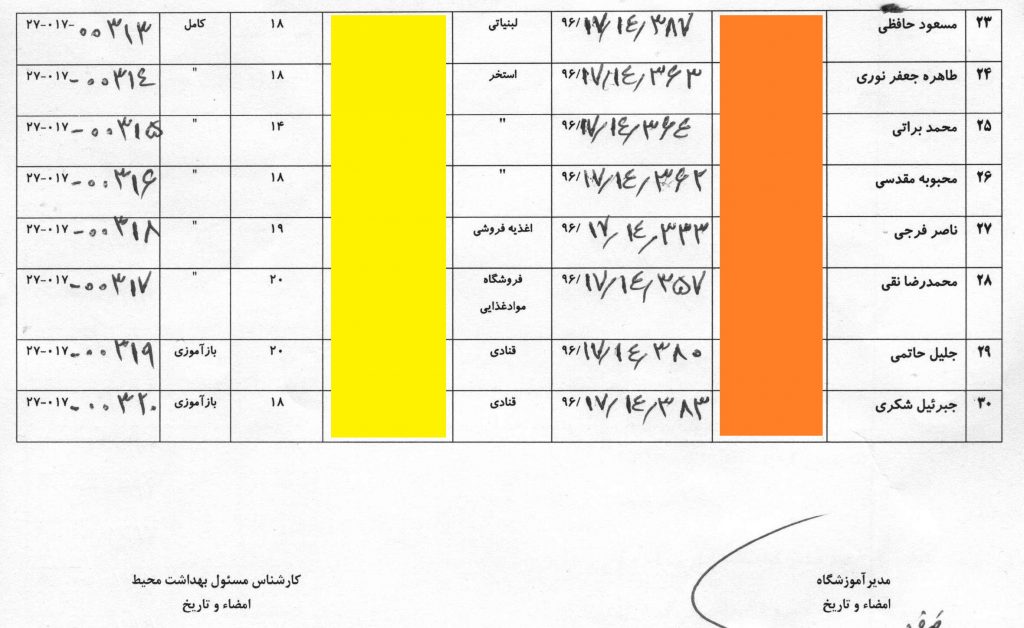 ۲۳ مسعود حافظی ۹۶/۱۷/۱۴/۳۸۷ لبنیاتی ۱۸ کامل ۲۷-۰۱۷-۰۰۳۱۳
۲۴ طاهره جعفر نوری ۹۶/۱۷/۱۴/۳۶۳ استخر ۱۸ " ۲۷-۰۱۷-۰۰۳۱۴
۲۵ محمد براتی ۹۶/۱۷/۱۴/۳۶۴ " ۱۴ " ۲۷-۰۱۷-۰۰۳۱۵
۲۶ محبوبه مقدسی ۹۶/۱۷/۱۴/۳۶۲ " ۱۸ " ۲۷-۰۱۷-۰۰۳۱۶
۲۷ ناصر فرجی ۹۶/۱۷/۱۴/۳۳۳ اغذیه فروشی ۱۹ " ۲۷-۰۱۷-۰۰۳۱۸
۲۸ محمدرضا نقی ۹۶/۱۷/۱۴/۳۵۷ فروشگاه ۲۰ " ۲۷-۰۱۷-۰۰۳۱۷
موادغذایی
۲۹ جلیل حاتمی ۹۶/۱۷/۱۴/۳۸۰ قنادی ۲۰ بازآموزی ۲۷-۰۱۷-۰۰۳۱۹
۳۰ جبرئیل شکری ۹۶/۱۷/۱۴/۳۸۳ قنادی ۱۸ بازآموزی ۲۷-۰۱۷-۰۰۳۲۰
مدیرآموزشگاه کارشناس مسئول بهداشت محیط
امضاء و تاریخ امضاء و تاریخ